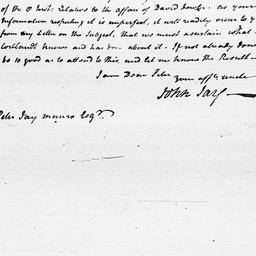 of the 8 Inst: relates to the affair of David            as your
Information respecting it is imperfect, it will readily occur to y
from my Letter on the Subject, that we must ascertain what
Cortlandt knows and has don about it - If not already done
be so good as to attend to this, and let me know the Result -
I am Dear Peter your affte uncle
John Jay
Peter Jay Munro Esqr.